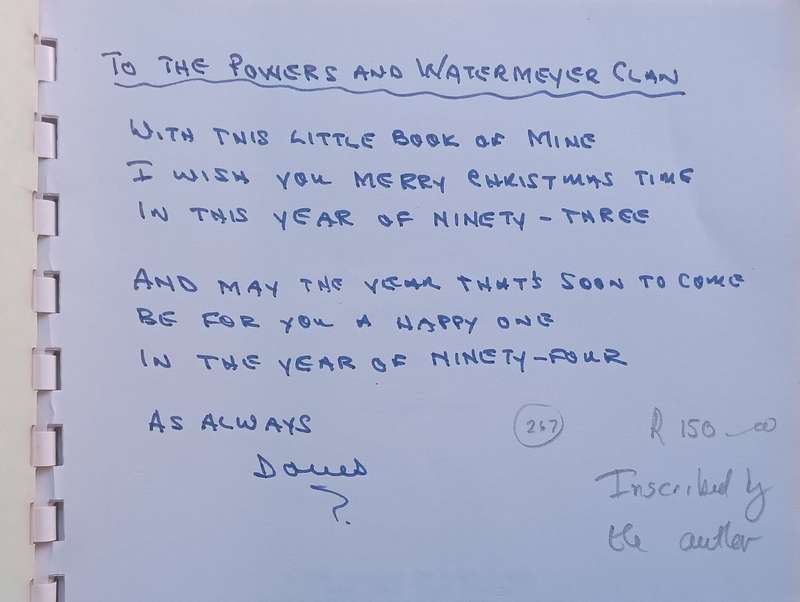 TO THE POWERS AND WATERMEYER CLAN
WITH THIS LITTLE BOOK OF MINE
I WISH YOU MERRY CHRISTMAS TIME
IN THIS YEAR OF NINETY-THREE
AND MAY THE YEAR THAT'S SOON TO COME
BE FOR YOU A HAPPY ONE
IN THE YEAR OF NINETY-FOUR
AS ALWAYS
?
267
R 150-00
Inscribed by
the author